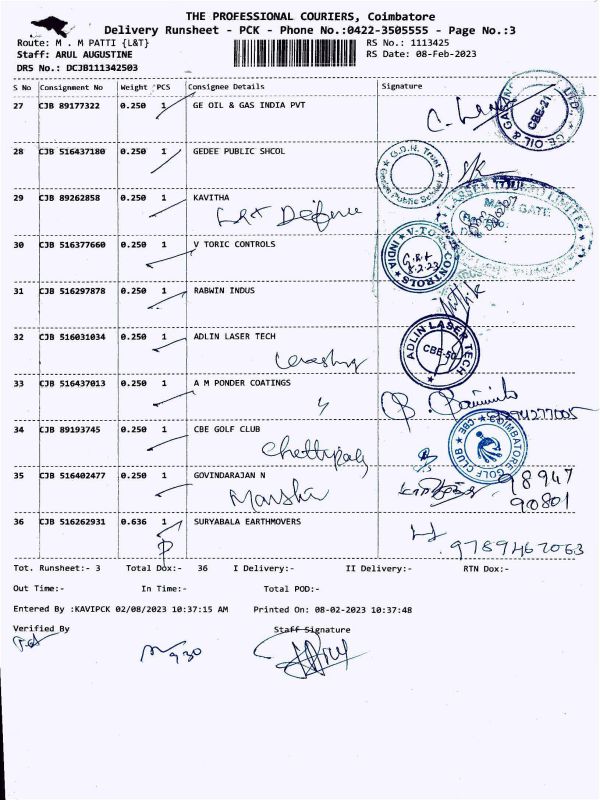 THE PROFESSIONAL COURIERS, Coimbatore
Delivery Runsheet - PCK - Phone No.:0422-3505555 - Page No.:3
Route: M . M PATTI {L&T} RS No.: 1113425
Staff: ARUL AUGUSTINE RS Date: 08-Feb-2023
DRS No.: DCJB111342503
S No Consignment No Weight PCS Consignee Details Signature
27 CJB 89177322 0.250 1 GE OIL & GAS INDIA PVT
CBE-21
28 CJB 516437180 0.250 1 GEDEE PUBLIC SHCOL
G.D.N. Trust
Gedee Public School
29 CJB 89262858 0.250 1 KAVITHA
L&T Defence
MAIN GATE
30 CJB 516377660 0.250 1 V TORIC CONTROLS
V-TORIC CONTROLS INDIA
8.2.23
31 CJB 516297878 0.250 1 RABWIN INDUS
32 CJB 516031034 0.250 1 ADLIN LASER TECH
ADLIN LASER TECH
CBE-50
33 CJB 516437013 0.250 1 A M PONDER COATINGS
34 CJB 89193745 0.250 1 CBE GOLF CLUB
COIMBATORE GOLF CLUB CBE
35 CJB 516402477 0.250 1 GOVINDARAJAN N
98947
90801
36 CJB 516262931 0.636 1 SURYABALA EARTHMOVERS
9789467063
Tot. Runsheet:- 3 Total Dox:- 36 I Delivery:- II Delivery:- RTN Dox:-
Out Time:- In Time:- Total POD:-
Entered By :KAVIPCK 02/08/2023 10:37:15 AM Printed On: 08-02-2023 10:37:48
Verified By Staff Signature
930